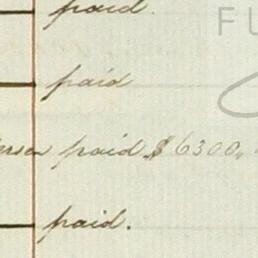 paid. FU
paid
paid $6300,
paid.